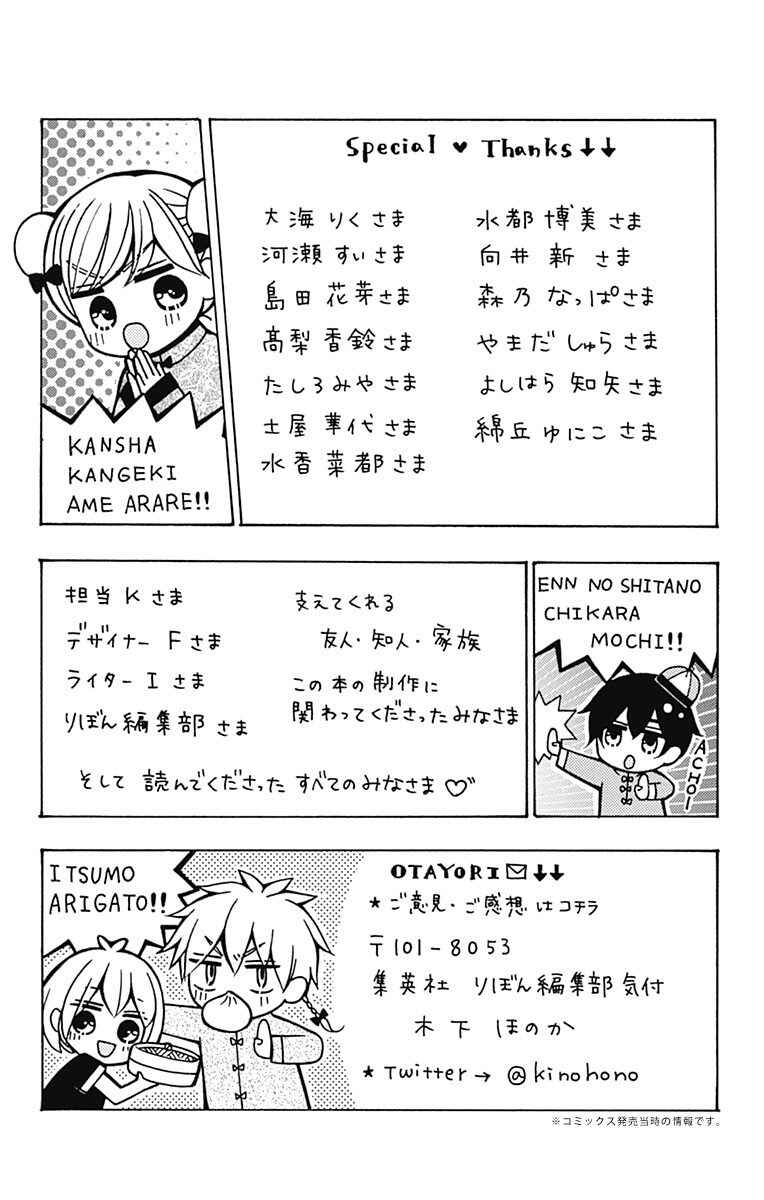 Special ♥ Thanks↓↓
大海 りくさま
河瀬 すいさま
島田 花芽さま
高梨 香鈴さま
たしろみやさま
土屋 華代さま
水香 菜都さま
水都 博美さま
向井 新 さま
森乃 なっぱさま
やまだ しゅらさま
よしはら 知矢さま
綿丘 ゆにこさま
KANSHA
KANGEKI
AME ARARE!!
担当 K さま
デザイナー F さま
ライター I さま
りぼん編集部 さま
支えてくれる
友人・知人・家族
この本の制作に
関わってくださったみなさま
そして 読んでくださった すべてのみなさま♡
ENN NO SHITANO
CHIKARA
MOCHI!!
ACHOI
ITSUMO
ARIGATO!!
OTAYORI✉↓↓
* ご意見・ご感想はコチラ
〒101-8053
集英社 りぼん編集部気付
木下 ほのか
* Twitter→ @kinohono
※コミックス発売当時の情報です。